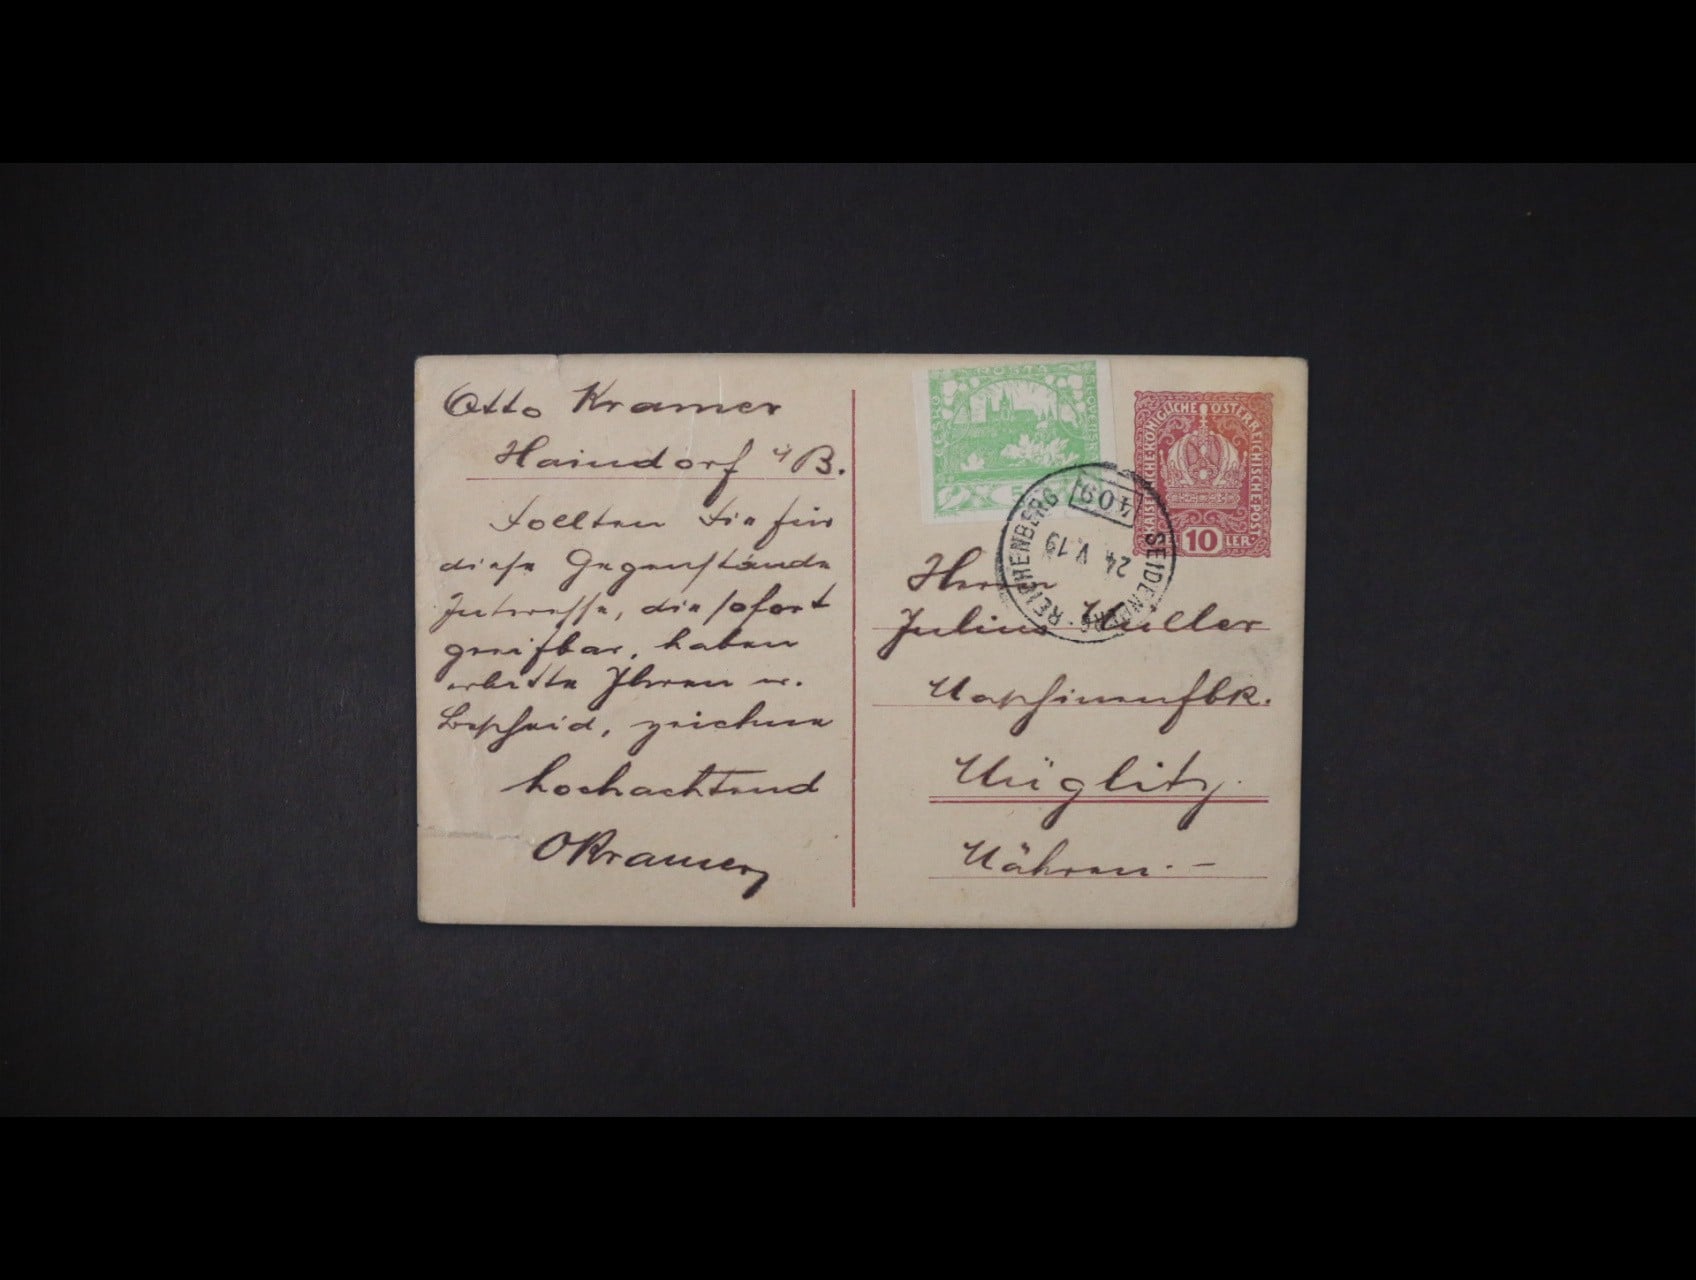 Otto Kramer
Haindorf i/B.
Sollten Sie für
diese Gegenstände
Interesse, die sofort
greifbar, haben
erbitte Ihren w.
Bescheid, zeichne
hochachtend
OKramer
ČESKO
POŠTA
SLOVENSKÁ
5
KAISERLICHE·KÖNIGLICHE ÖSTERREICHISCHE·POST
10
LER
SEIDENBERG·REICHENBERG
409
24 V 19
Herrn
Julius Müller
Maschinenfbk.
Müglitz.
Mähren.–